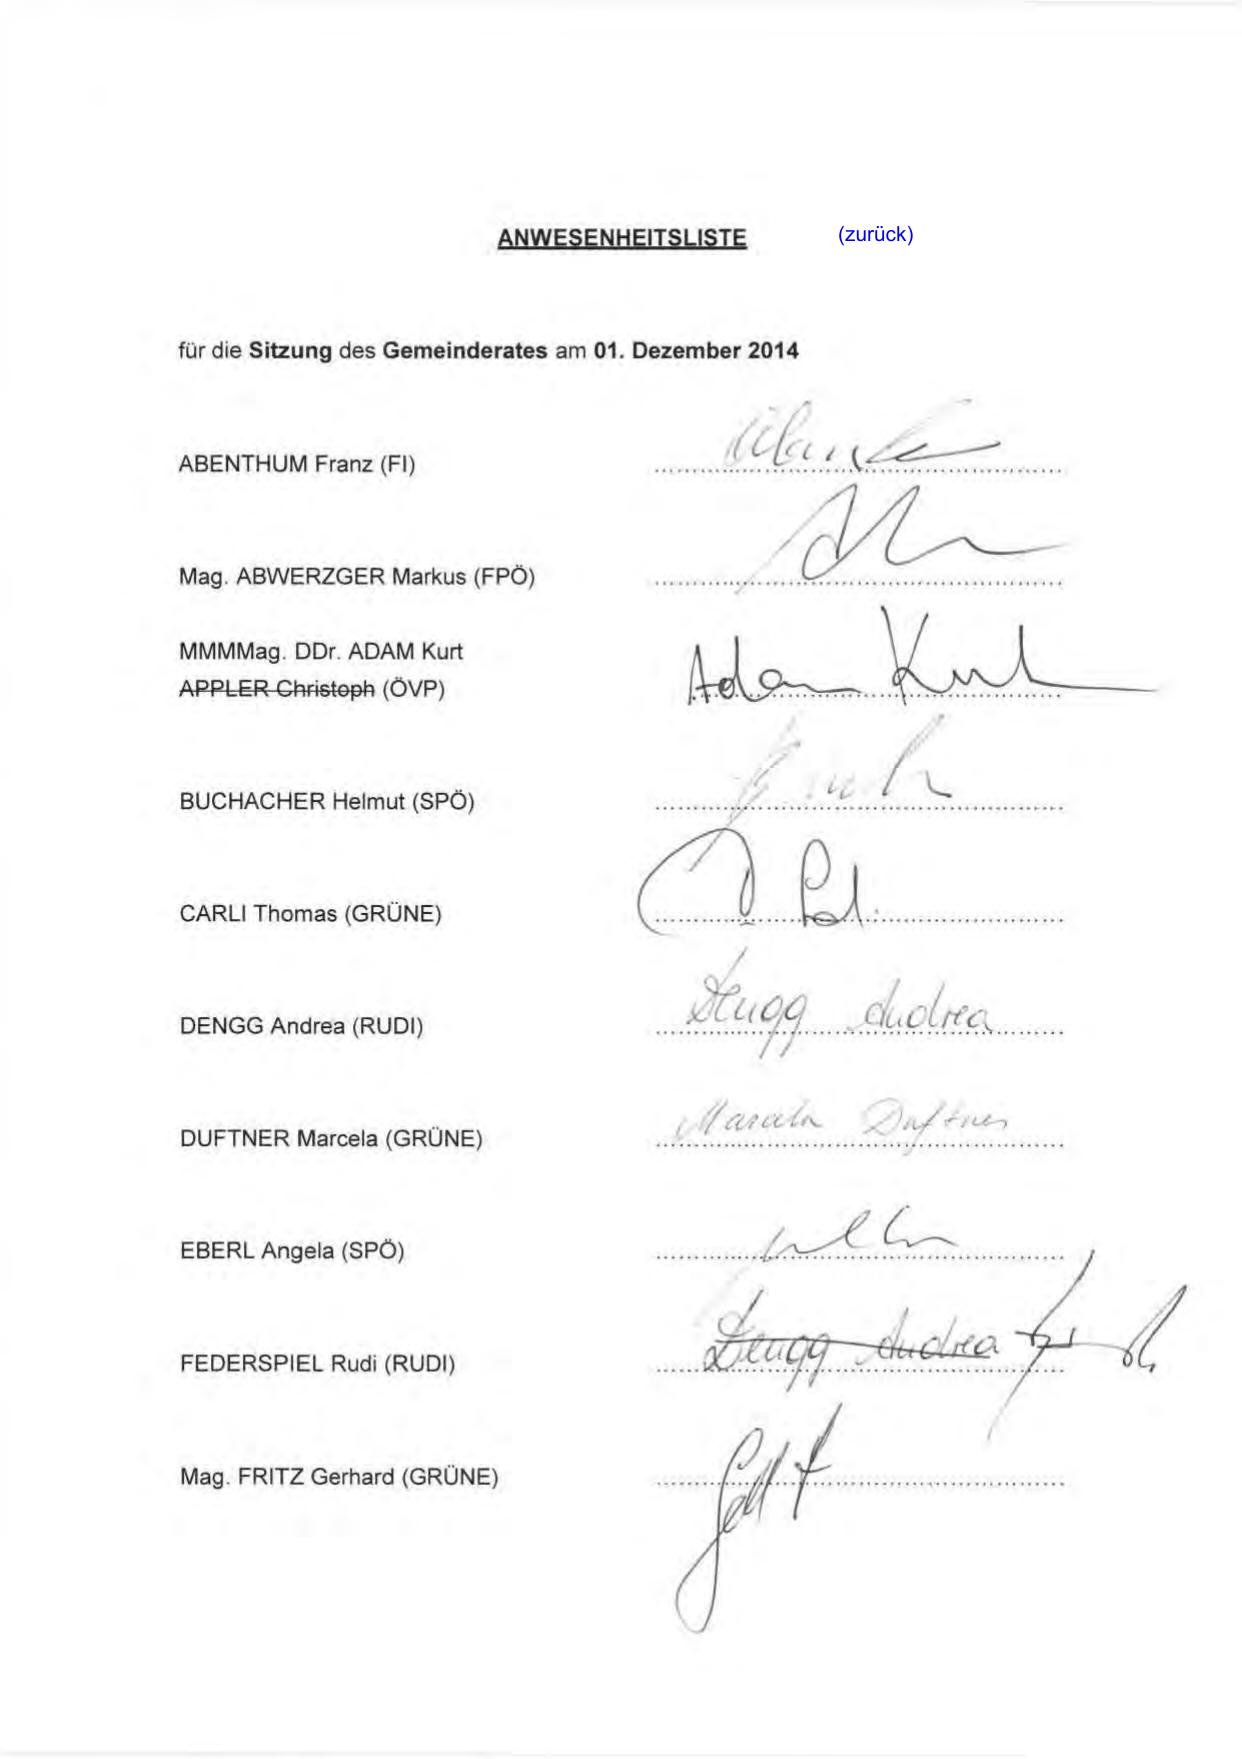 ANWESENHEITSLISTE (zurück)
für die Sitzung des Gemeinderates am 01. Dezember 2014
ABENTHUM Franz (FI)
Mag. ABWERZGER Markus (FPÖ)
MMMMag. DDr. ADAM Kurt
APPLER Christoph (ÖVP) Adam Kurt
BUCHACHER Helmut (SPÖ)
CARLI Thomas (GRÜNE)
DENGG Andrea (RUDI) Dengg Andrea
DUFTNER Marcela (GRÜNE) Marcela Duftner
EBERL Angela (SPÖ)
FEDERSPIEL Rudi (RUDI) Dengg Andrea
Mag. FRITZ Gerhard (GRÜNE)